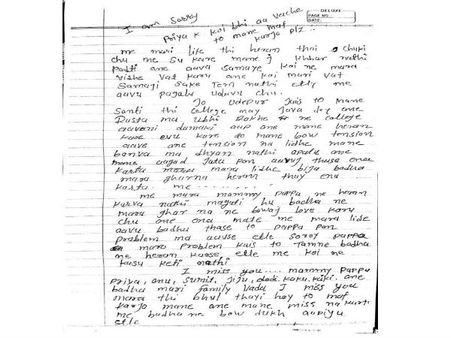 DELUXE
PAGE NO.
DATE
I am Sorry
Priya k koi bhi aa vache
to mane maf
karjo plz..
me mari life thi heran thai chuki
chu me su kare mane j khbar nathi
padti ane aava samaye koi ne mara
vishe vat karu ane koi mari vat
Samaji Sake tem nathi etle me
aavu pagalu uduvu chu.
Jo udepur jais to mane
Santi thi college may Java dey one
Rasta ma ubhi Rakhe ne college
aavvani dhamki aap ane mane heran
kare evu kare to mane bow tension
aave ane tension na lidhe mane
banva ma dhyan nathi apatu ane
mane aagad jata pan aavuj thuse ane
karta mara lidhe bija badha
mara gharna heran thuy ena
karta me
me mara mummy pappa ne heran
karva nathi magati hu badha ne
mara ghar na ne bowaj love karu
chu ane ena mate me mara lide
aavu badhu thase to pappa pan
problem ma aavse etle sorry pappa
mara problem kais to tamne badha
ne heran karse, etle me koi ne
kasu keti nathi
I miss you.... mummy pappa
priya, anu, sumit, jiju, dada, kaku, kaki. ane
badha mari family vada I miss you
mara thi bhul thayi hoy to maf
karjo mane ane mane miss na karti
me badha ne bow dukh aapiyu
etle